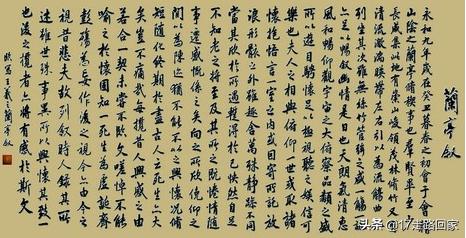 蘭亭叙
永和九年歲在癸丑暮春之初會于會稽
山陰之蘭亭脩禊事也羣賢畢至少
長咸集此地有崇山峻領茂林脩竹又有
清流激湍暎帶左右引以為流觴曲水
列坐其次雖無絲竹管絃之盛一觴一詠
亦足以暢叙幽情是日也天朗氣清惠
風和暢仰觀宇宙之大俯察品類之盛
所以遊目騁懷足以極視聽之娱信可
樂也夫人之相與俯仰一世或取諸
懷抱悟言一室之內或因寄所託放
浪形骸之外雖趣舍萬殊靜躁不同
當其欣於所遇暫得於己快然自足
不知老之將至及其所之既惓情隨
事遷感慨係之矣向之所欣俛仰之
間以為陳迹猶不能不以之興懷況脩
短隨化終期於盡古人云死生亦大
矣豈不痛哉每攬昔人興感之由
若合一契未嘗不臨文嗟悼不能
喻之於懷固知一死生為虛誕齊
彭殤為妄作後之視今亦由今之
視昔悲夫故列叙時人錄其所
述雖世殊事異所以興懷其致一
也後之攬者亦將有感於斯文
臨寫王羲之蘭亭叙
头条 @17走路回家